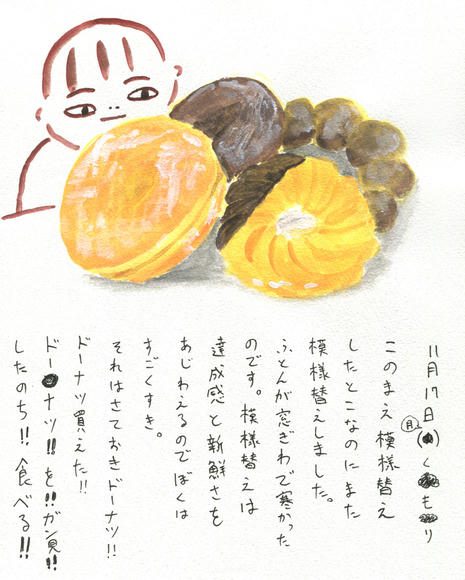 11月17日(月)くもり
このまえ模様替え
したとこなのにまた
模様替えしました。
ふとんが窓ぎわで寒かった
のです。模様替えは
達成感と新鮮さを
あじわえるのでぼくは
すごくすき。
それはさておきドーナツ!!
ドーナツ買えた!!
ドーナツ!!を!!ガン見!!
したのち!!食べる!!